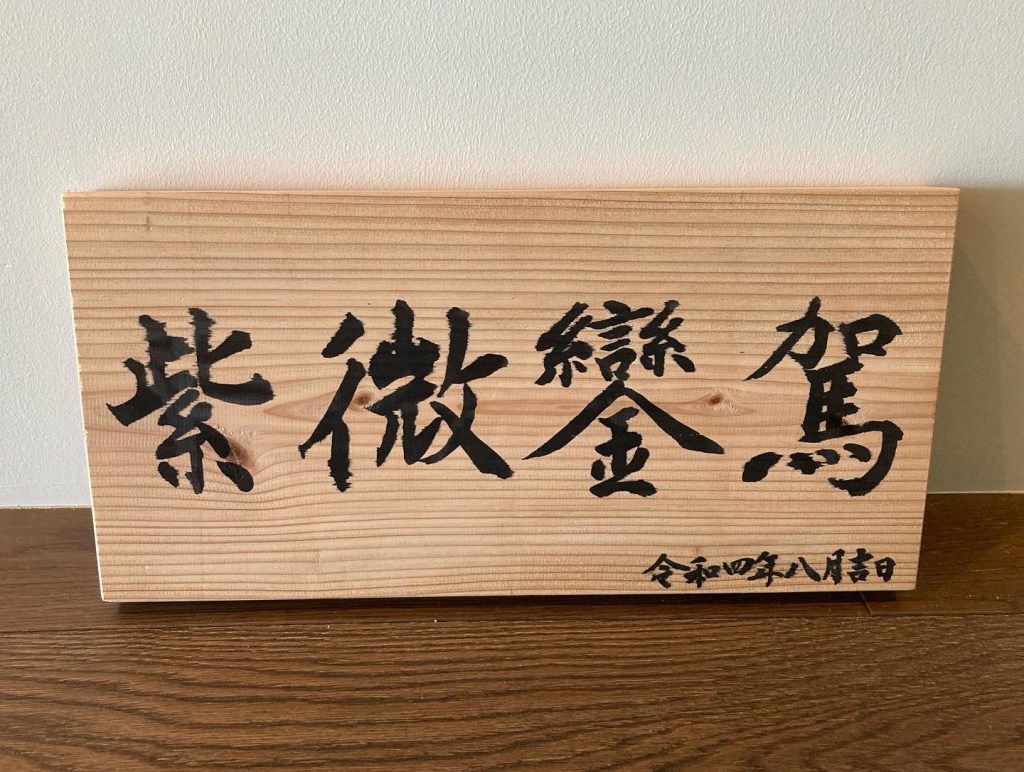 紫微鑾駕
令和四年八月吉日